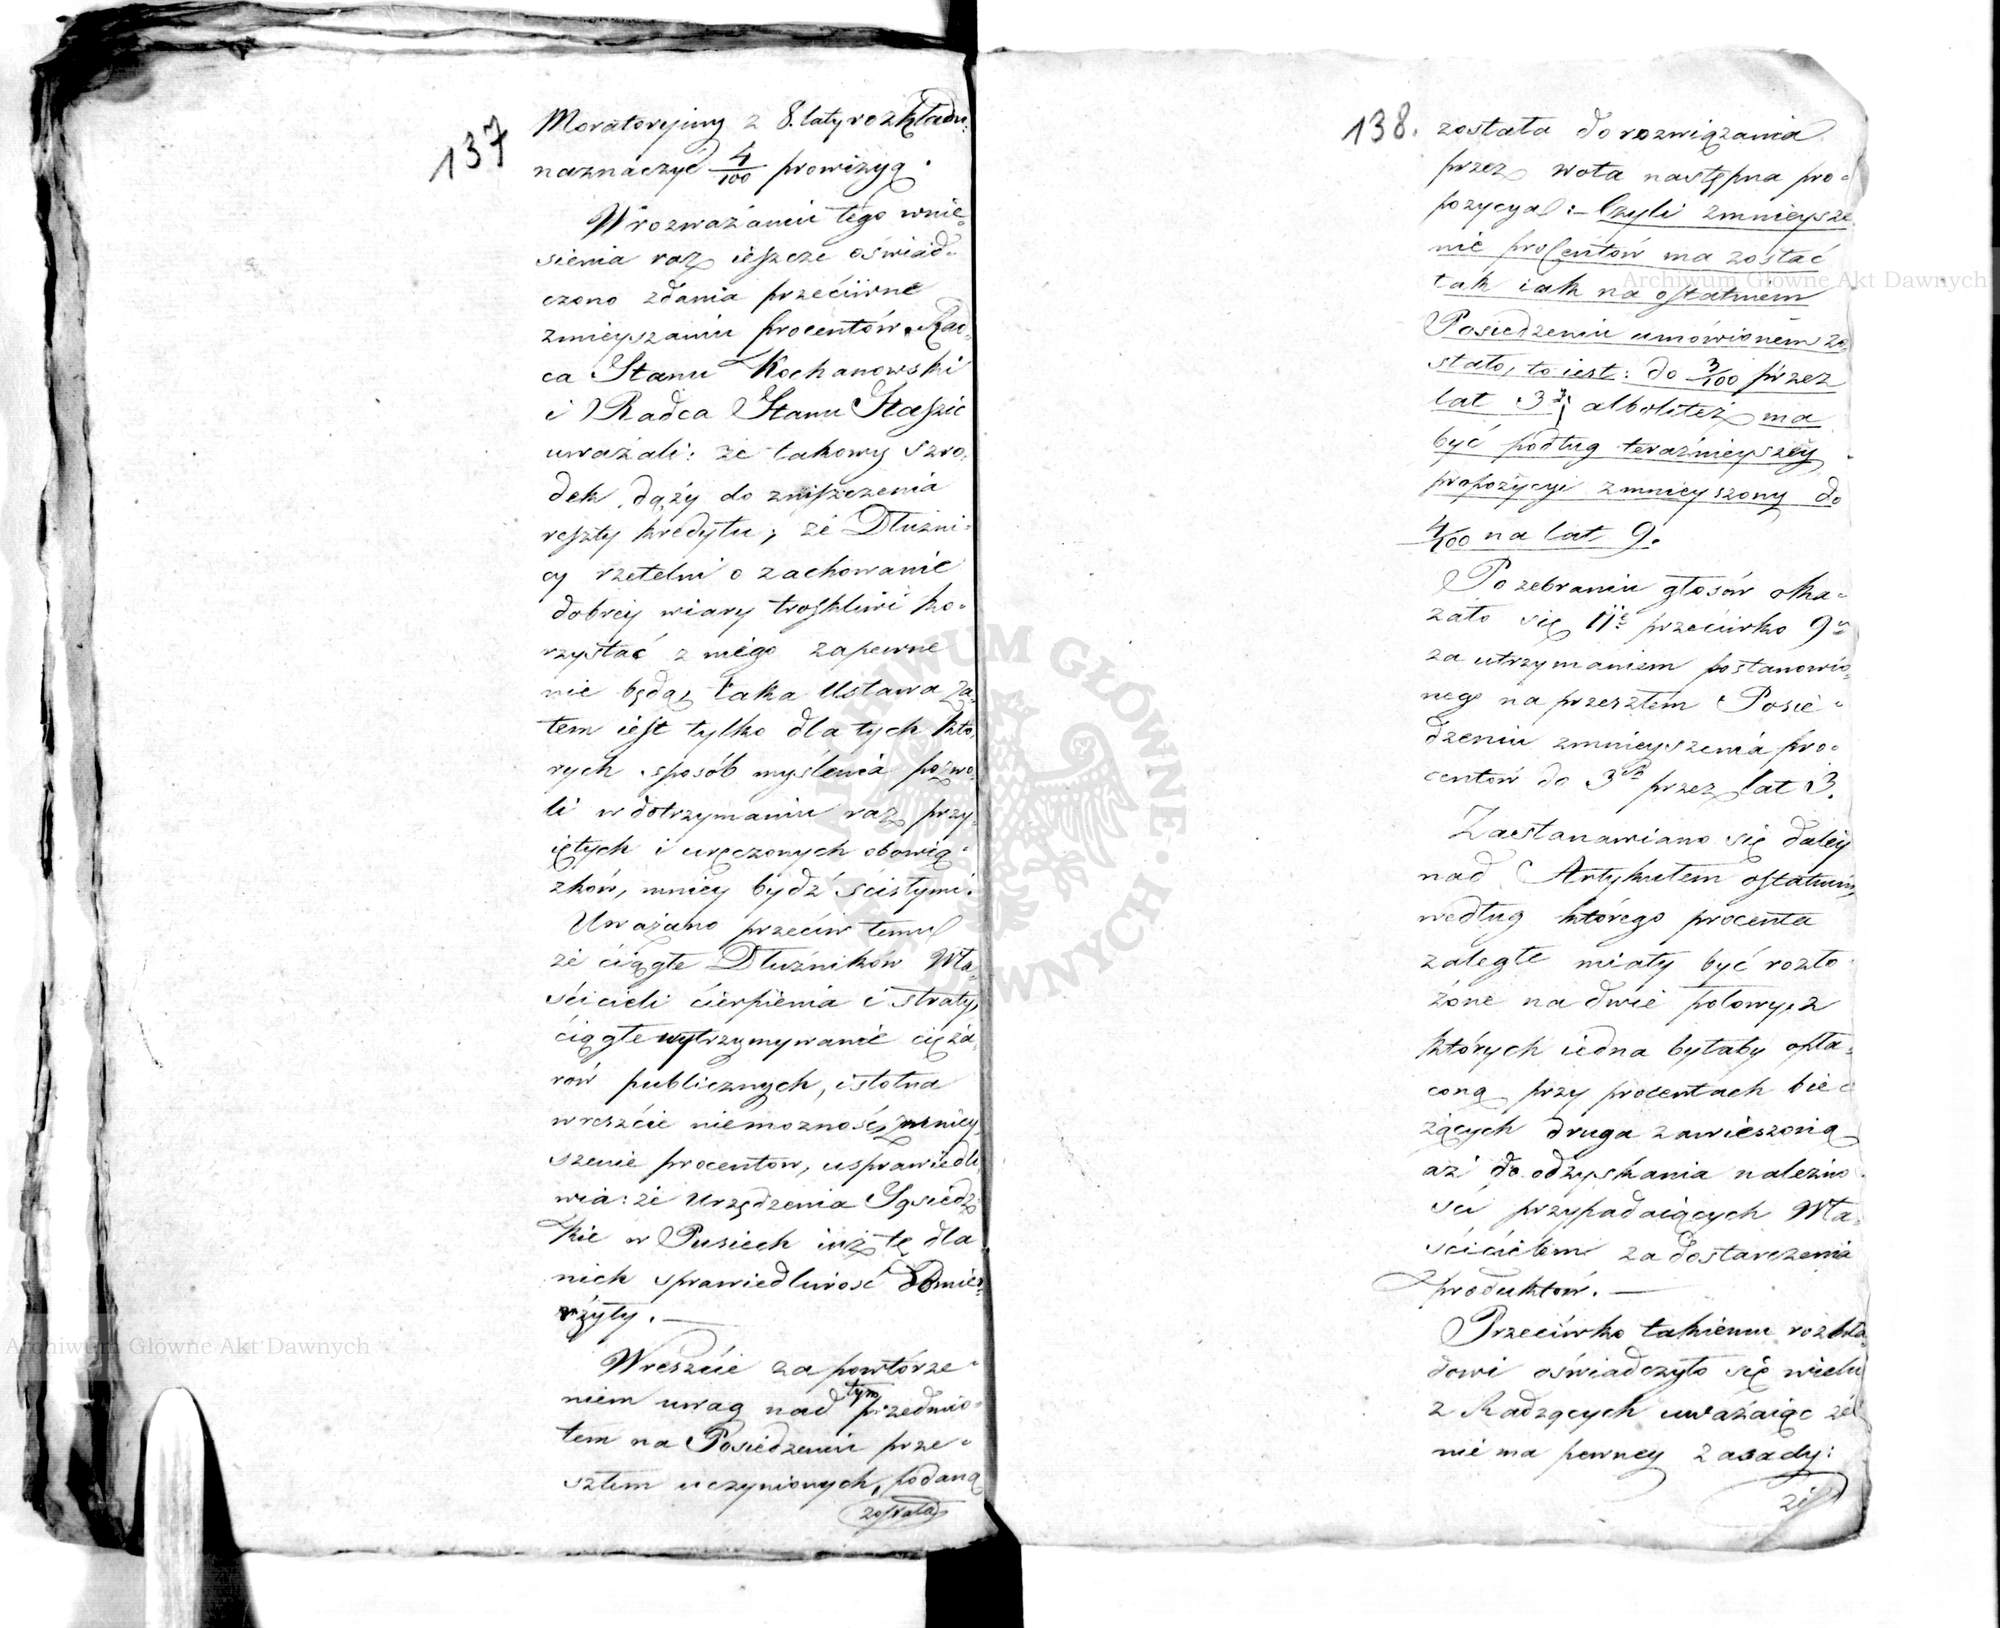 137
Moratoryiny z 8. laty rozkładu:
naznaczyć 4/100 prowizyą.
W rozważaniu tego wnie-
sienia raz ieszcze oświad-
czono zdania przeciwne
zmieyszaniu procentów. Rad-
ca Stanu Kochanowski
i Radca Stanu Staszic
uważali: że takowy szro-
dek dąży do zniszczenia
reszty kredytu; że Dłużni-
cy rzetelni o zachowanie
dobrey wiary troskliwi ko-
rzystać z niego zapewne
nie będą, taka Ustawa za-
tem iest tylko dla tych któ-
rych sposób myślenia pozwo-
li w dotrzymaniu raz przy-
iętych i uręczonych obowią-
zków, mniey bydź ścisłymi.
Uważano przeciw temu
że ciągłe Dłużników Wła-
ścicieli cierpienia i straty,
ciągłe wytrzymywanie cięża-
rów publicznych, istotna
wreszcie niemozność, zmniey-
szenie procentów, usprawiedli-
wia: że Urządzenia Sąsiedz-
kie w Prusiech iuż tę dla
nich sprawiedliwość Domier-
rzyły. —
Wreszcie za powtórze-
niem uwag nad tym przedmio-
tem na Posiedzeniu prze-
szłem uczynionych, podaną
została
138.
została do rozwiązania
przez wota następna pro-
pozycya: – Czyli zmnieysze
nie procentów ma zostać
tak iak na ostatniem
Posiedzeniu umówionem zo-
stało, to iest: do 3/100 przez
lat 3; albo też ma
być podług teraźnieyszey
propozycyi zmnieyszony do
4/100 na lat 9.
Po zebraniu głosów oka-
zało się 11 przeciwko 9
za utrzymaniem postanowio-
nego na przeszłem Posie-
dzeniu zmnieyszenia pro-
centów do 3 przez lat 3.
Zastanawiano się daley
nad Artykułem ostatnim,
według którego procenta
zaległe miały być rozło
żone na dwie połowy, z
których iedna byłaby opła-
coną przy procentach bie-
żących druga zawieszoną
aż do odzyskania należno
ści przypadaiących Wła-
ścicielom za dostarczenia
produktów. —
Przeciwko takiemu rozkła-
dowi oświadczyło się wielu
z Radzących uważaiąc że
nie ma pewney zasady:
że